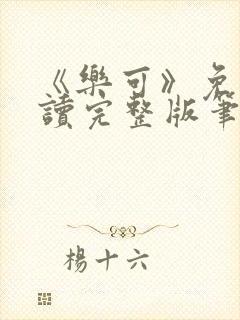 《樂可》免
讀完整版筆
楊十六